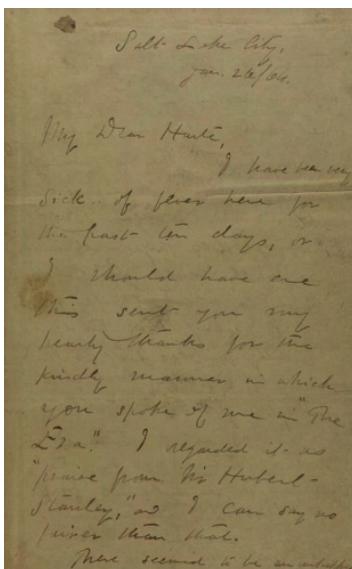 Salt Lake City,
Jan. 26/64.
My Dear Harte,
I have been very
sick.. of fever here for
the past ten days, or
I should have ere
this sent you my
hearty thanks for the
kindly manner in which
you spoke of me in "The
Era." I regarded it as
"praise from Sir Hubert-
Stanley," and I can say no
more than that.
There seemed to be an